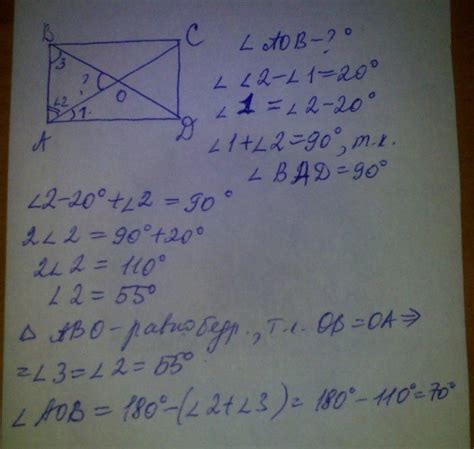 B
C
3
?
O
∠2
1.
A
D
∠AOB-?°
∠ ∠2-∠1=20°
∠1=∠2-20°
∠1+∠2=90°, т.к.
∠BAD=90°
∠2-20°+∠2=90°
2∠2=90°+20°
2∠2=110°
∠2=55°
△ ABO-равнобедр., т.к. OB=OA⇒
=∠3=∠2=55°
∠AOB=180°-(∠2+∠3)=180°-110°=70°